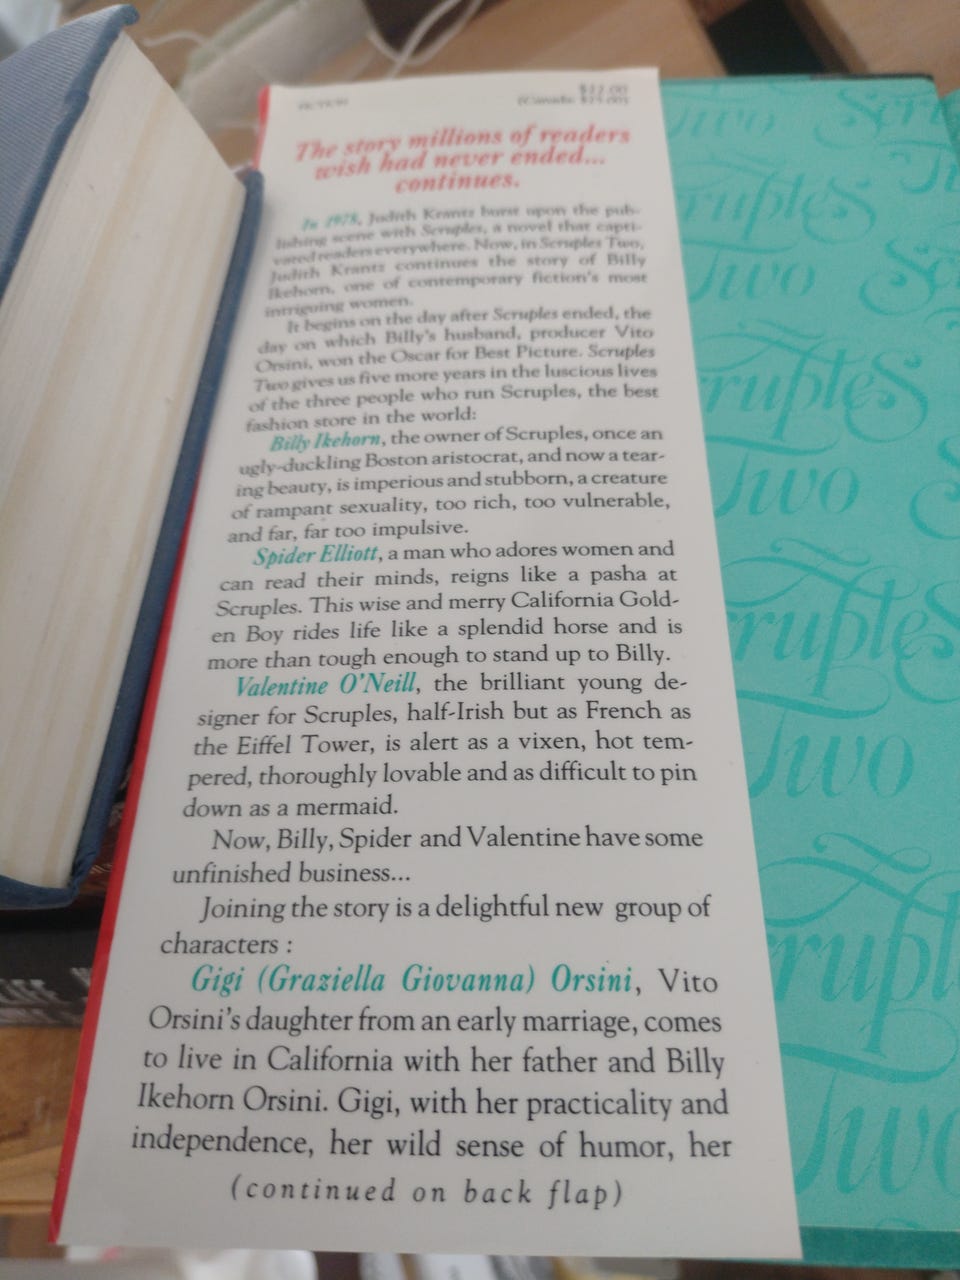 FICTION
$22.00
(Canada: $25.00)
The story millions of readers
wish had never ended...
continues.
In 1978, Judith Krantz burst upon the pub-
lishing scene with Scruples, a novel that capti-
vated readers everywhere. Now, in Scruples Two,
Judith Krantz continues the story of Billy
Ikehorn, one of contemporary fiction's most
intriguing women.
It begins on the day after Scruples ended, the
day on which Billy's husband, producer Vito
Orsini, won the Oscar for Best Picture. Scruples
Two gives us five more years in the luscious lives
of the three people who run Scruples, the best
fashion store in the world:
Billy Ikehorn, the owner of Scruples, once an
ugly-duckling Boston aristocrat, and now a tear-
ing beauty, is imperious and stubborn, a creature
of rampant sexuality, too rich, too vulnerable,
and far, far too impulsive.
Spider Elliott, a man who adores women and
can read their minds, reigns like a pasha at
Scruples. This wise and merry California Gold-
en Boy rides life like a splendid horse and is
more than tough enough to stand up to Billy.
Valentine O'Neill, the brilliant young de-
signer for Scruples, half-Irish but as French as
the Eiffel Tower, is alert as a vixen, hot tem-
pered, thoroughly lovable and as difficult to pin
down as a mermaid.
Now, Billy, Spider and Valentine have some
unfinished business...
Joining the story is a delightful new group of
characters :
Gigi (Graziella Giovanna) Orsini, Vito
Orsini's daughter from an early marriage, comes
to live in California with her father and Billy
Ikehorn Orsini. Gigi, with her practicality and
independence, her wild sense of humor, her
(continued on back flap)
Two
Scruples
Two
Scruples
Two
Scruples
Two
Scrupl
Two